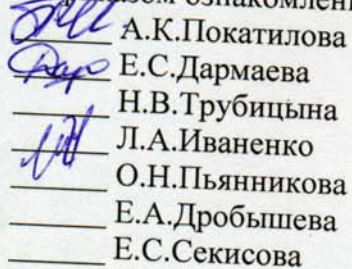 ознакомлен
А.К.Покатилова
Е.С.Дармаева
Н.В.Трубицына
Л.А.Иваненко
О.Н.Пьянникова
Е.А.Дробышева
Е.С.Секисова